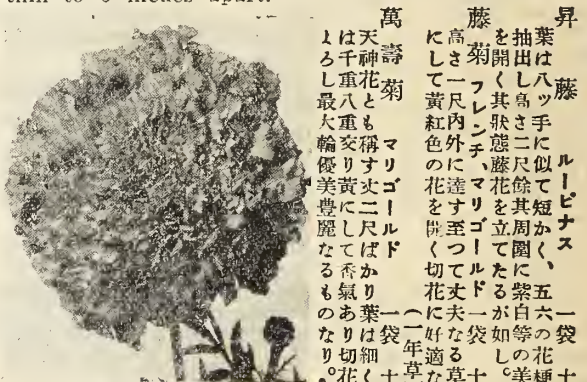 thin to 6 inches apart.
昇藤 ルーピナス 一袋 十
葉は八ッ手に似て短かく、五六の花種
抽出し高さ二尺餘其周圍に紫白等の美
を開く其狀態藤花を立てたるが如し。
藤菊 フレンチ、マリゴールド 一袋 十
高さ一尺內外に達す至つて丈夫なる草
にして黃紅色の花を開く切花に好適な
(一年草
萬壽菊 マリゴールド 一袋 十
天神花とも稱す丈二尺ばかり葉は細く
は千重八重交り黃にして香氣あり切花
よろし最大輪優美豊麗なるものなり。